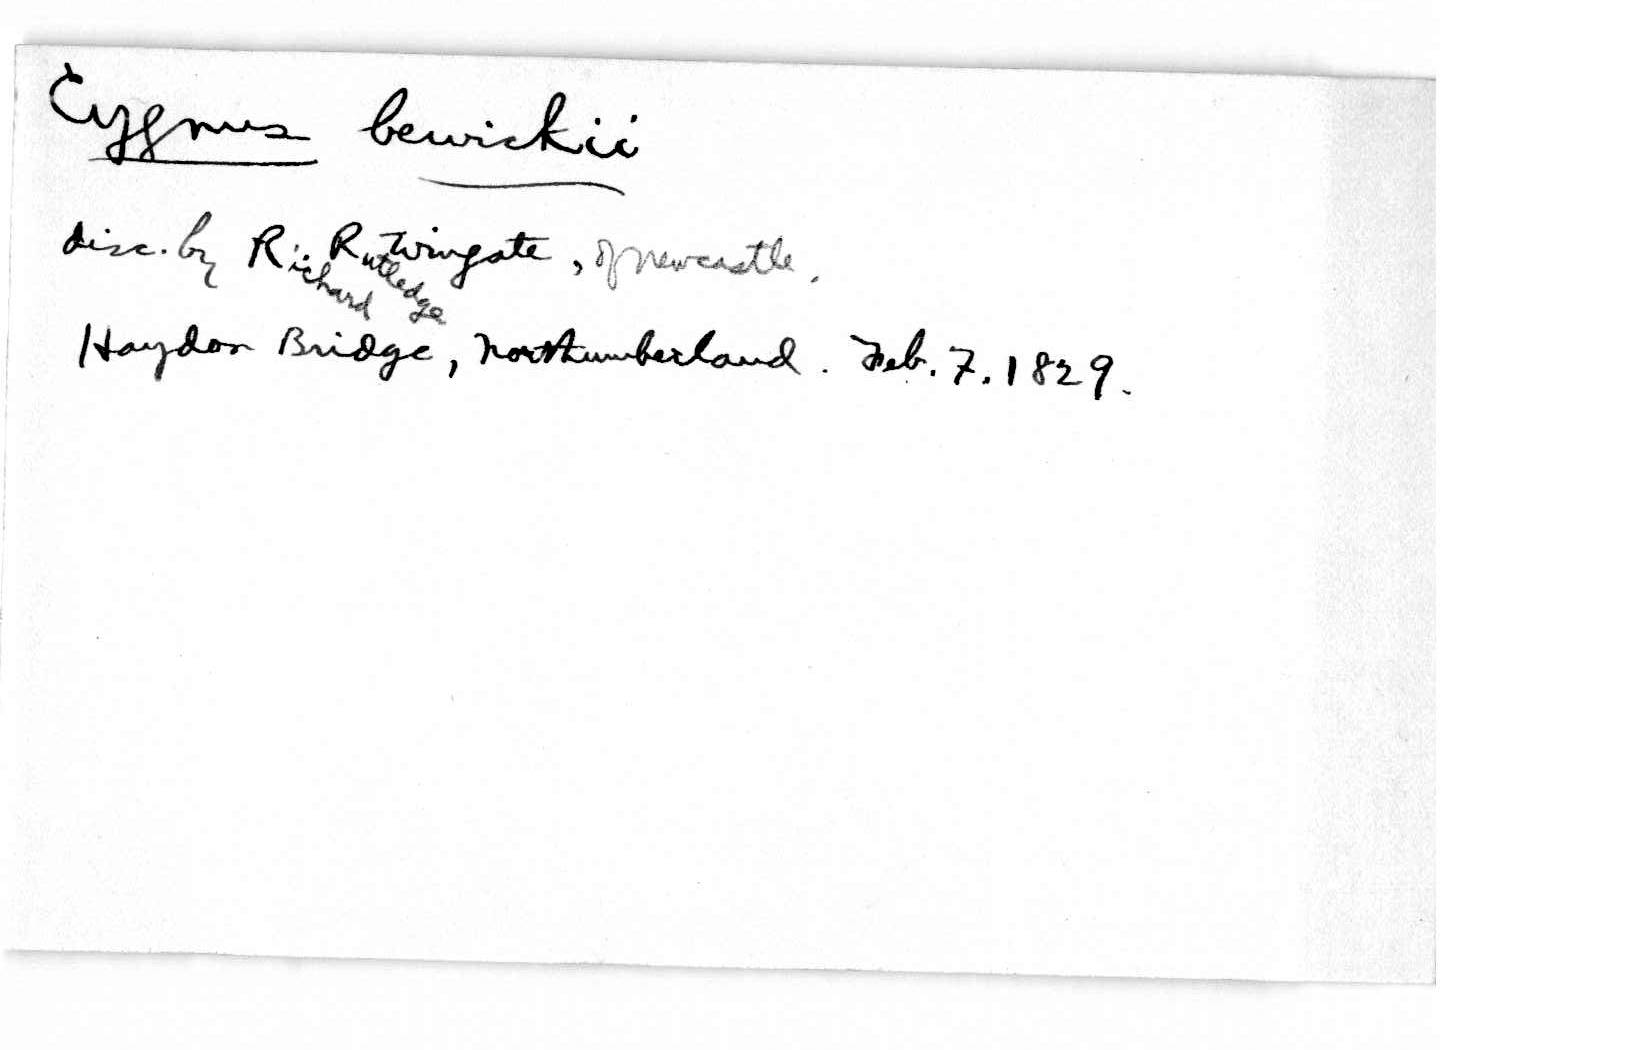 Cygnus bewickii
disc. by Richard Rutledge Wingate, of Newcastle.
Haydon Bridge, Northumberland. Feb. 7. 1829.